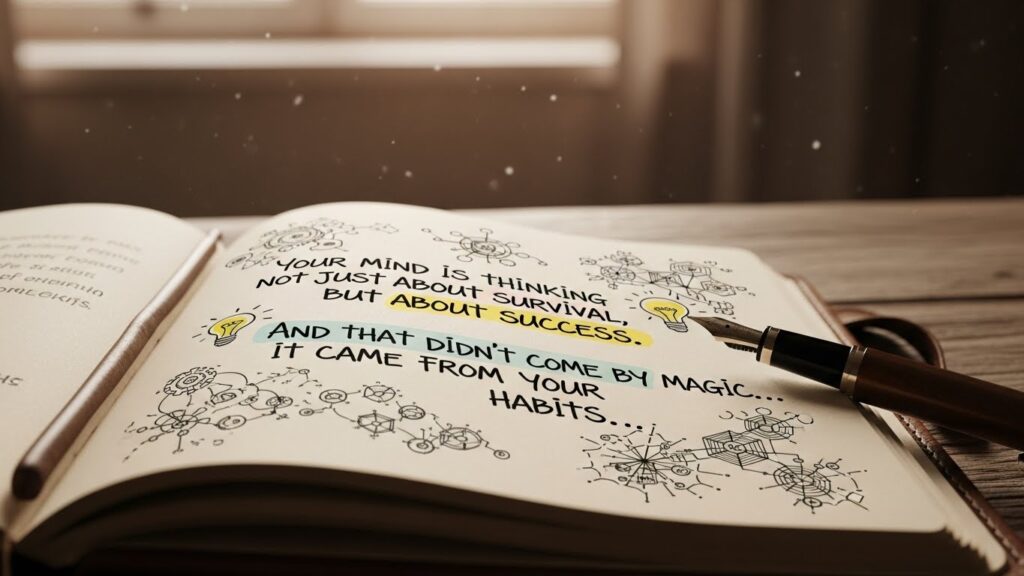 YOUR MIND IS THINKING
NOT JUST ABOUT SURVIVAL,
BUT ABOUT SUCCESS.
AND THAT DIDN'T COME BY MAGIC...
IT CAME FROM YOUR
HABITS...